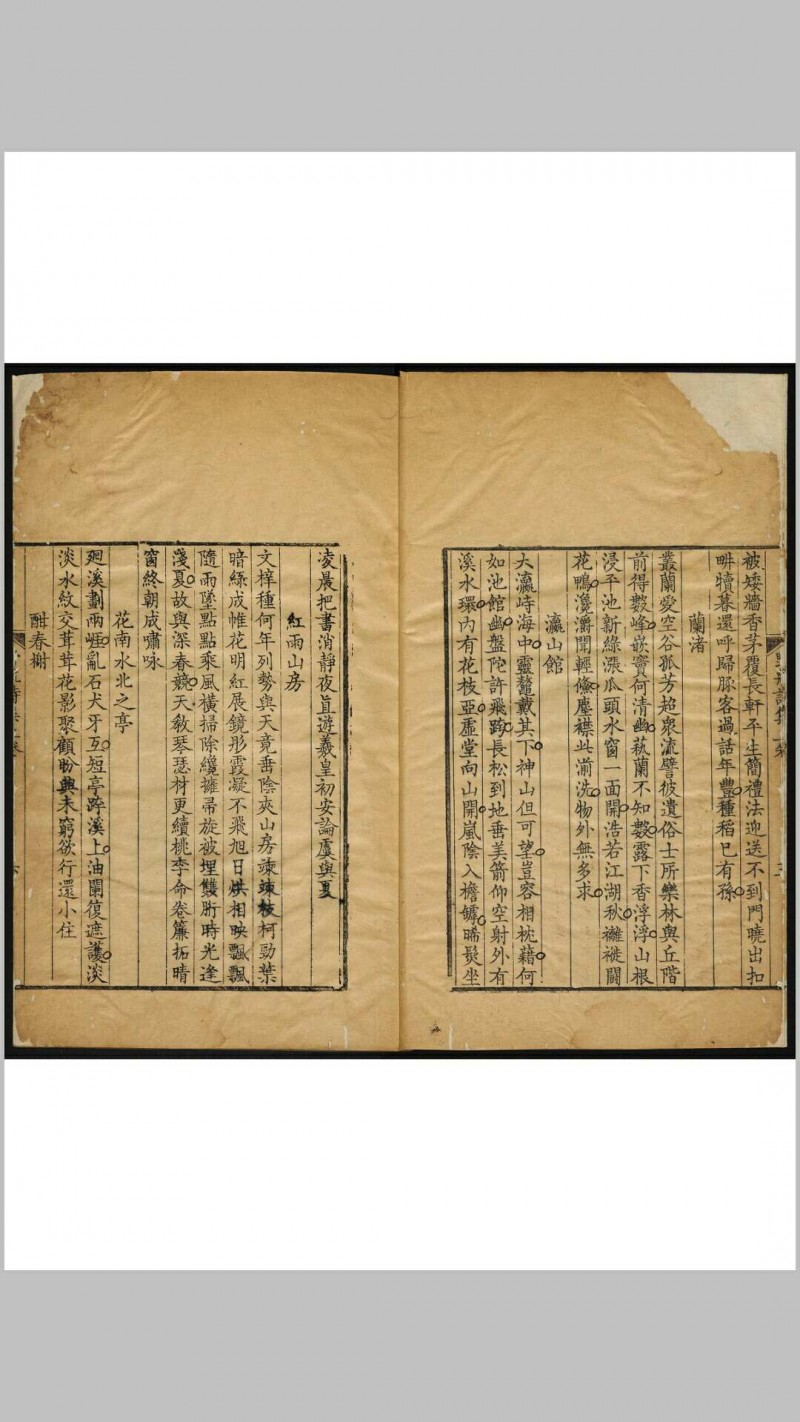 被矮牆香茅覆長軒平生簡禮法迎送不到門曉出扣
畊犢暮還呼歸豚客過話年豐種稻已有孫
蘭渚
叢蘭愛空谷孤芳超衆流譬彼遺俗士所樂林與丘階
前得數峰嵌竇何清幽蓺蘭不知數露下香浮浮山根
浸平池新綠漲瓜頭水窗一面開浩若江湖秋褷褷鬪
花鴨瀺灂聞輕鯈塵襟此湔洗物外無多求
瀛山館
大瀛峙海中靈鼇戴其下神山但可望豈容相枕藉何
如池館幽盤陀許飛跨長松到地垂美箭仰空射外有
溪水環內有花枝亞虛堂向山開嵐陰入檐罅晞髮坐
凌晨把書消靜夜眞遊羲皇初安論虞與夏
紅雨山房
文檡種何年列勢與天竟垂陰夾山房竦竦枝柯勁葉
暗綠成帷花明紅展鏡彤霞凝不飛旭日烘相映飄飄
隨雨墜點點乘風橫掃除纔擁帚旋被埋雙脛時光逢
淺夏故與深春競天敎琴瑟材更續桃李命卷簾拓晴
窗終朝成嘯咏
花南水北之亭
廻溪劃兩崕亂石犬牙互短亭跨溪上油闌復遮護淡
淡水紋交茸茸花影聚顧盼興未窮欲行還小住
酣春榭